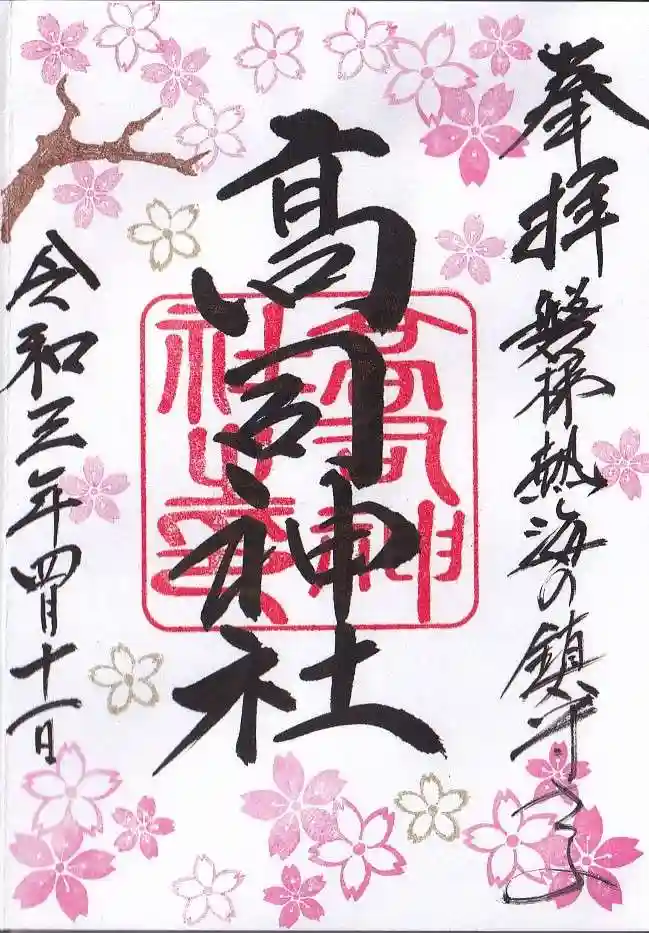 奉拝
磐梯熱海の鎮守さま
高司神社
高司神社之印
令和三年四月十一日